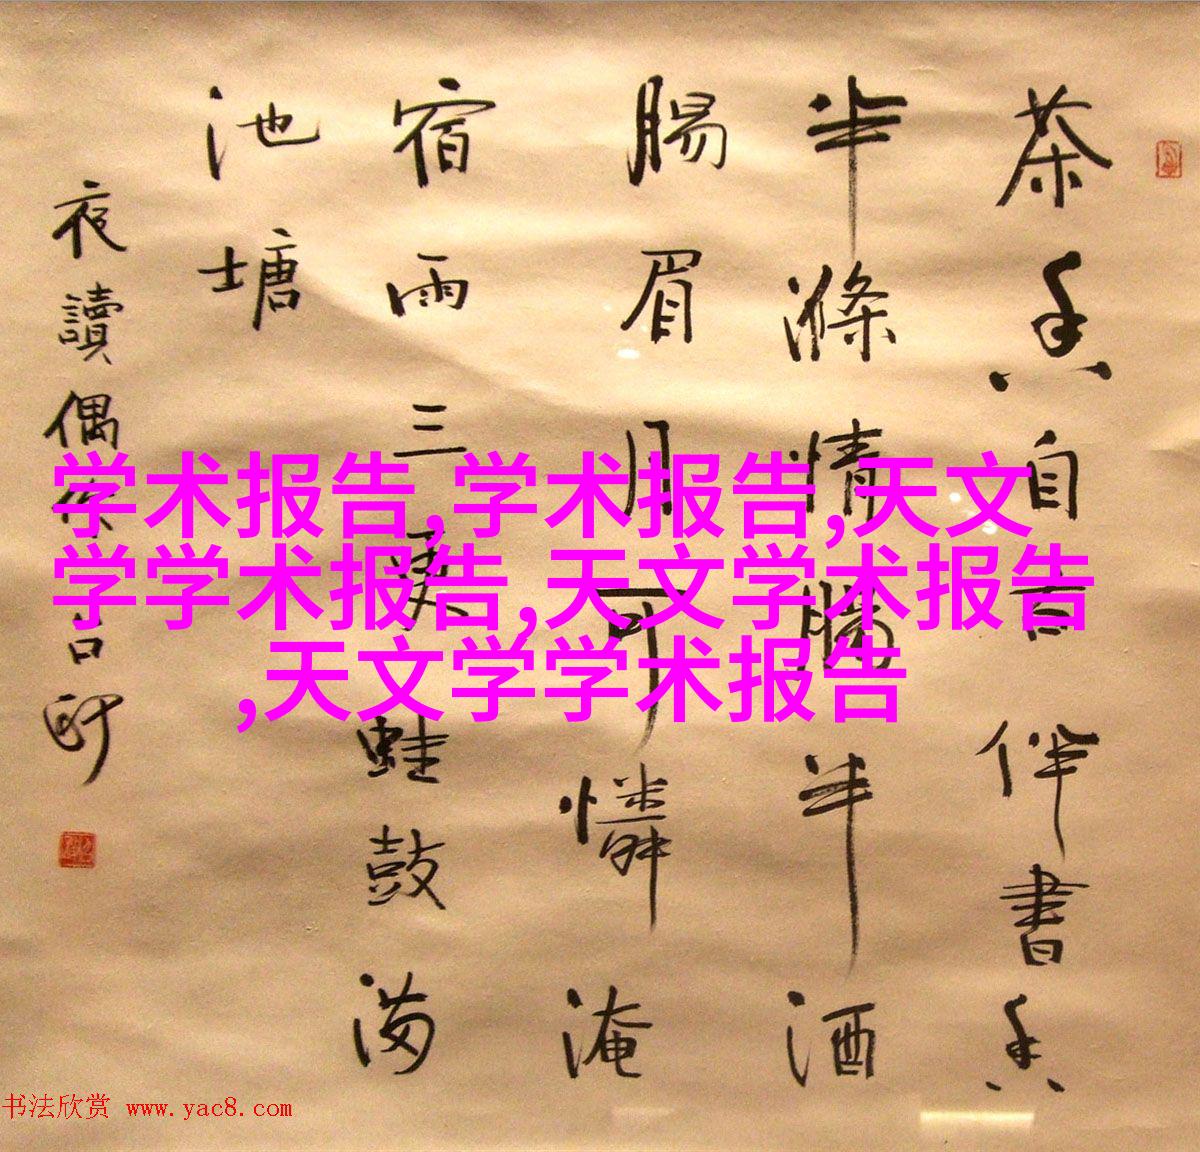 茶香自古伴書香
半滌情腸半酒
腸眉月可憐淹
宿雨三更蛙鼓满
池塘
夜讀偶作
学术报告,学术报告,天文
学学术报告,天文学术报告
,天文学学术报告
书法欣赏 www.yac8.com